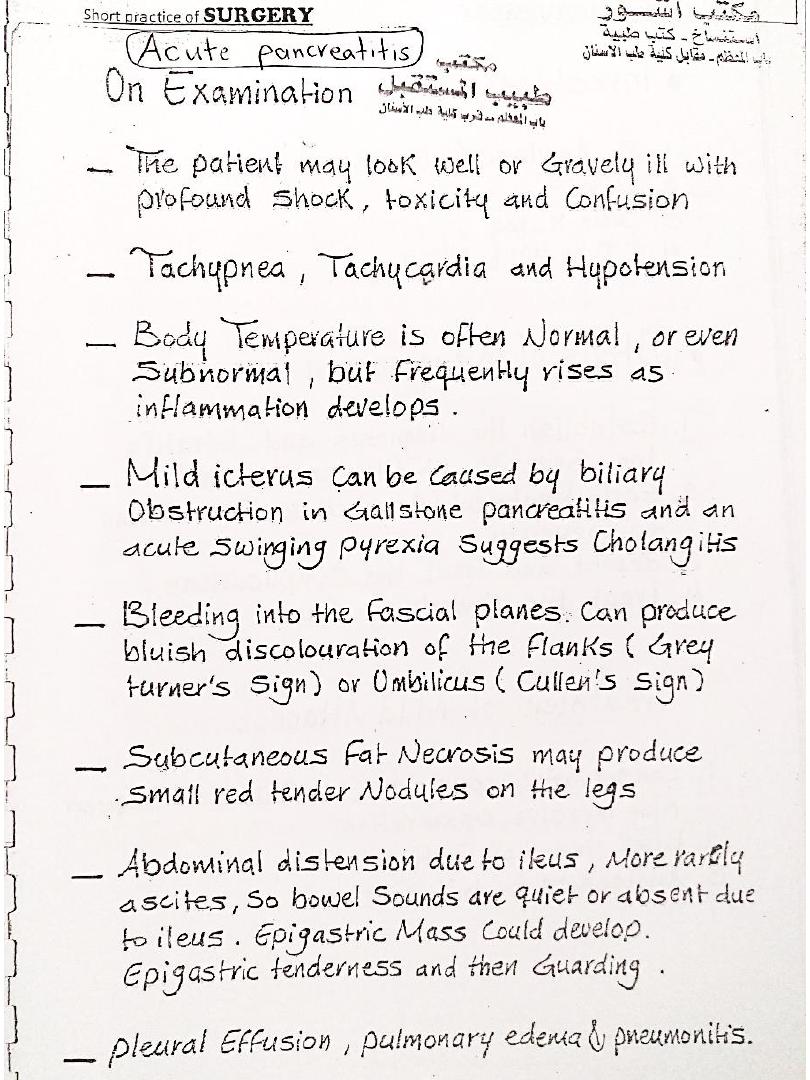 Short practice of SURGERY
مكتب النسور
استنساخ - كتب طبية
باب المعظم - مقابل كلية طب الاسنان
Acute pancreatitis
مكتب
طبيب المستقبل
باب المعظم - قرب كلية طب الأسنان
On Examination
— The patient may look well or Gravely ill with
profound shock, toxicity and Confusion
— Tachypnea, Tachycardia and Hypotension
— Body Temperature is often Normal, or even
Subnormal, but frequently rises as
inflammation develops.
— Mild icterus Can be Caused by biliary
Obstruction in Gallstone pancreatitis and an
acute Swinging pyrexia Suggests Cholangitis
— Bleeding into the Fascial planes. Can produce
bluish discolouration of the flanks (Grey
turner's Sign) or Umbilicus (Cullen's Sign)
— Subcutaneous Fat Necrosis may produce
Small red tender Nodules on the legs
— Abdominal distension due to ileus, More rarely
ascites, So bowel Sounds are quiet or absent due
to ileus. Epigastric Mass Could develop.
Epigastric tenderness and then Guarding.
— pleural Effusion, pulmonary edema & pneumonitis.